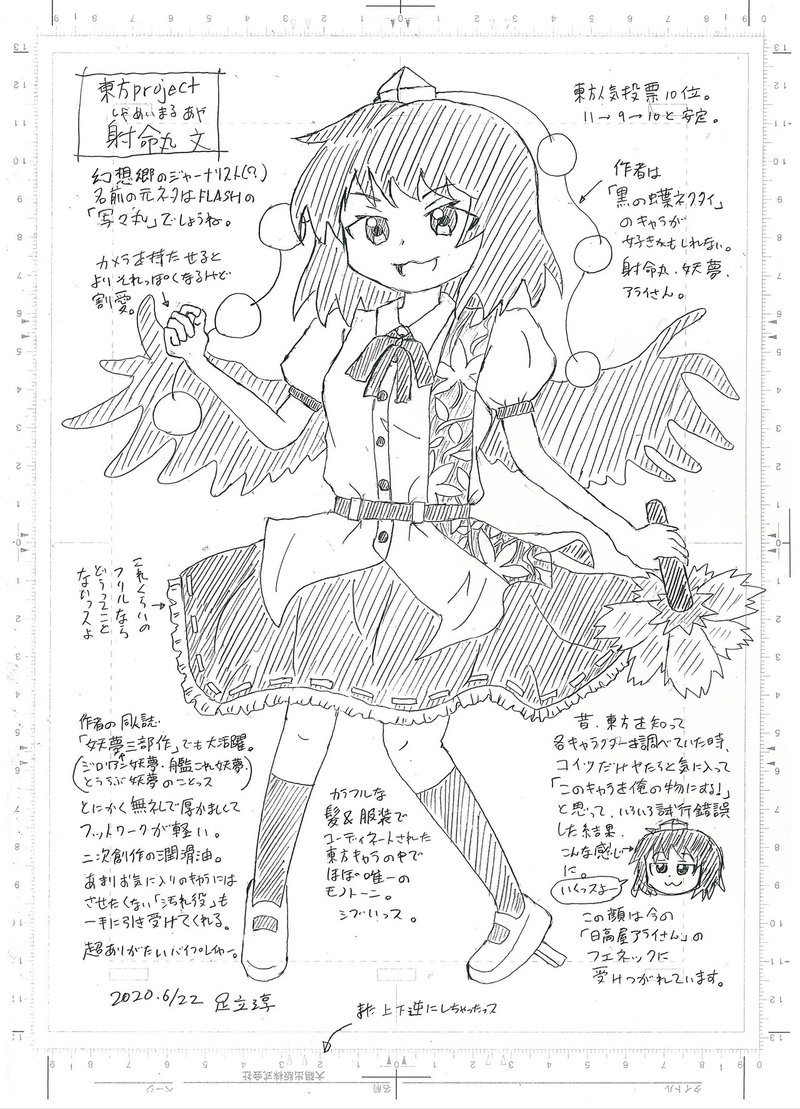 東方project
しゃめいまる あや
射命丸 文
幻想郷のジャーナリスト(?)
名前の元ネタはFLASHの
「写々丸」でしょうね。
カメラを持たせると
よりそれっぽくなるけど
割愛。
東方人気投票10位。
11→9→10と安定。
作者は
「黒の蝶ネクタイ」
のキャラが
好きかもしれない。
射命丸、妖夢、
アライさん。
これくらいの
フリルなら
どうってこと
ないっスよ
作者の同人誌
「妖夢三部作」でも大活躍。
(ジロリアン妖夢・艦これ妖夢・
とうらぶ妖夢のことっス)
とにかく無礼で厚かましくて
フットワークが軽い。
二次創作の潤滑油。
あまりお気に入りのキャラには
させたくない「汚れ役」も
一手に引き受けてくれる。
超ありがたいバイプレイヤー。
カラフルな
髪&服装で
コーディネートされた
東方キャラの中で
ほぼ唯一の
モノトーン。
シブいっス。
昔、東方を知って
各キャラクターを調べていた時、
コイツだけやたらと気に入って
「このキャラを俺の物にする!」
と思って、いろいろ試行錯誤
した結果、
こんな感じ
に。
いくっスよ
この顔は今の
「日高屋アライさん」の
フェネックに
受けつがれています。
2020.6/22 足立淳
また上下逆にしちゃったっス
タイトル
名前
大陽出版株式会社
ページ